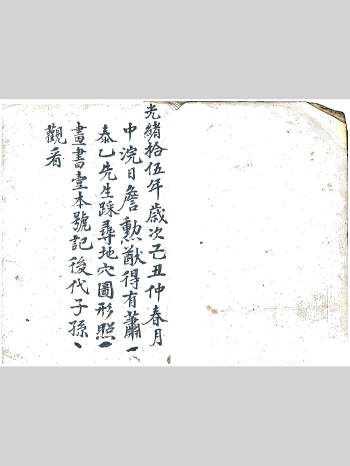 光緒拾伍年歲次己丑仲春月
中浣日詹勲猷得有蕭一
泰乙先生踩尋地穴圖形照一
畫書壹本號記後代子孫、
觀看